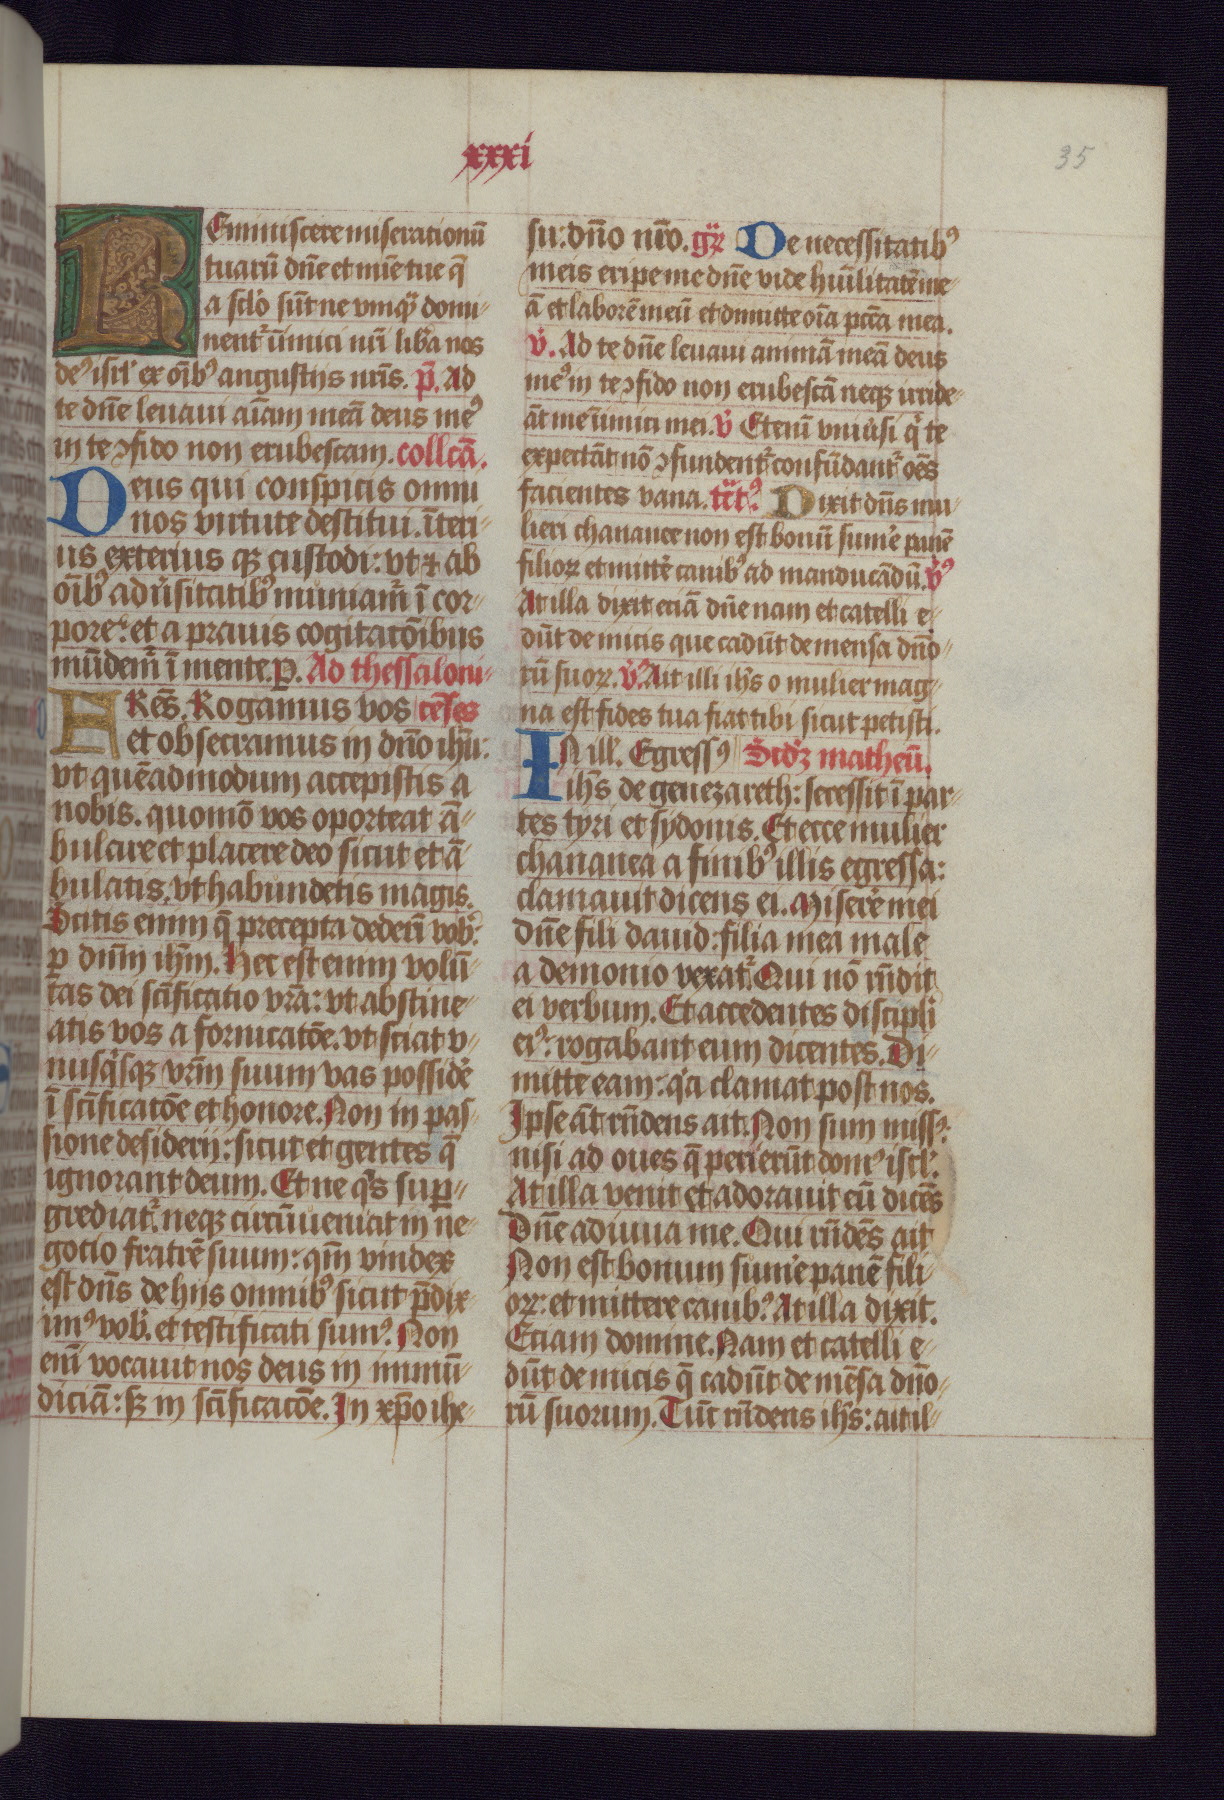 xxxi
35
Reminiscere miserationũ
tuarũ dñe et mie᷑ tue q̃
a sclo᷑ sũt ne vnqꝫ domi-
nent᷑ inimici nr̃i liba᷑ nos
deꝰ isrl᷑ ex oĩbꝰ angustijs nr̃is. p̃. Ad
te dñe leuaui aĩam meã deus meꝰ
in te ꝯfido non erubescam. collcã.
Deus qui conspicis omni
nos virtute destitui. ĩteri-
us exterius qꝫ custodi: vt ⁊ ab
oĩbꝰ adũsitatibꝰ muniam᷑ ĩ cor-
pore: et a prauis cogitatõibus
mũdem᷑ ĩ mente. P. Ad thessaloni-
FRẽs. Rogamus vos cẽses
et obsecramus in dño ihũ:
vt quẽadmodum accepistis a
nobis. quomõ vos oporteat ã-
bulare et placere deo sicut et ã-
bulatis. vt habundetis magis.
Scitis enim q̃ precepta dederĩ vobꝭ
ꝑ dñm ihm̃. Hec est enim volũ-
tas dei scĩficatio vrã: vt abstine-
atis vos a fornicatõe. vt sciat v-
nusqᷤsqꝫ vrm̃ suum vas posside᷑
ĩ scĩficatõe et honore. Non in pas-
sione desiderij: sicut et gentes q̃
ignorant deum. Et ne qᷤs suꝑ-
grediat᷑. neqꝫ circũueniat in ne-
gotio fratrẽ suum: qm̃ vindex
est dñs de hijs omnibꝰ sicut p̃dix-
imꝰ vobꝭ. et testificati sumꝰ. Non
enĩ vocauit nos deus in inmũ-
diciã: sꝫ in scĩficatõe. In xp̃o ihe-
su: dño nr̃o. gr̃ De necessitatibꝰ
meis eripe me dñe vide hũilitatẽ me-
ã et laborẽ meũ et dimitte oĩa pctã mea.
v̾. Ad te dñe leuaui animã meã deus
meꝰ in te ꝯfido non erubescã neqꝫ irride-
ãt me ĩimici mei. v̾ Etenĩ vniũsi qⁱ te
expectãt nõ ꝯfundent᷑ confũdant᷑ oẽs
facientes vana. tc̃tꝰ Dixit dñs mu-
lieri chananee non est bonũ sume᷑ panẽ
filioꝝ et mitte᷑ canibꝰ ad manducãdũ. v̾ꝰ
At illa dixit eciã dñe nam et catelli e-
dũt de micis que cadũt de mensa dño-
rũ suoꝝ. v̾ꝰ Ait illi ihs̃ o mulier mag-
na est fides tua fiat tibi sicut petisti.
IN ill. Egressꝰ Scdꝫ matheũ.
ihs̃ de genezareth: secessit ĩ par-
tes tyri et sydonis. Et ecce mulier
chananea a finibꝰ illis egressa:
clamauit dicens ei. Misere᷑ mei
dñe fili dauid: filia mea male
a demonio vexat᷑. Qui nõ rñdit
ei verbum. Et accedentes discipli
eiꝰ: rogabant eum dicentes. Di-
mitte eam: qᷓa clamat post nos.
Ipse ãt rñdens ait. Non sum missꝰ:
nisi ad oues q̃ perierũt domꝰ isrl᷑.
At illa venit et adorauit eũ dicẽs
Dñe adiuua me. Qui rñdẽs ait
Non est bonum sume᷑ panẽ fili
oꝝ: et mittere canibꝰ. At illa dixit.
Etiam domine. Nam et catelli e-
dũt de micis q̃ cadũt de mẽsa dño-
rũ suorum. Tũc rñdens ihs̃: ait il-